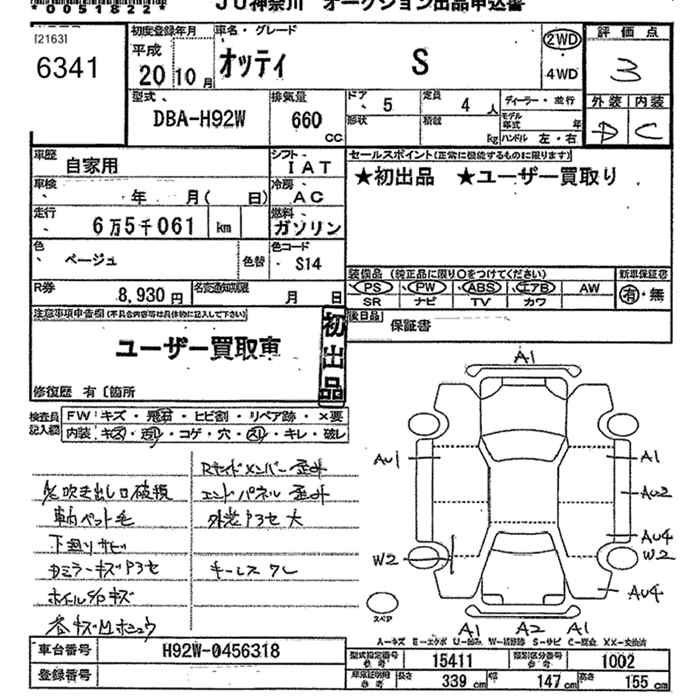 *0051822*
JU神奈川 オークション出品申込書
[2163]
6341
初度登録年月
平成
20 10月
車名・グレード
オッティ S
2WD
4WD
評価点
3
外装 内装
D C
型式
DBA-H92W
排気量
660 CC
ドア
5
定員
4 人
形状
積載
kg
ディーラー・並行
モデル年式 年
ハンドル 左・右
車歴
自家用
シフト
IAT
車検
年 月( 日)
冷房
AC
走行
6万5千061 km
燃料
ガソリン
色
ベージュ
色替
色コード
S14
R券
8,930円
名変通知期限
月 日
セールスポイント(正常に機能するものに限ります)
★初出品 ★ユーザー買取り
装備品 (純正品に限り○をつけてください)
PS PW ABS エアB AW
SR ナビ TV カワ
新車保証書
有・無
後日品
保証書
注意事項申告欄(不具合内容等は具体的に記入して下さい)
ユーザー買取車
初出品
修復歴 有〔箇所
検査員記入欄
FW:キズ・飛石・ヒビ割・リペア跡・×要
内装:キズ・汚レ・コゲ・穴・スレ・キレ・破レ
Rサイドメンバー歪外
A/C吹き出し口破損
エンドパネル歪外
車内ペット毛
外装アラセ大
下廻りサビ
Rミラーキズアラセ
キーレスナシ
ホイルS/Oキズ
各キズUホシュウ
A1
AU1
A1
AU2
AU4
W2
W2
AU4
スペア
A1 A2 A1
A-キズ E-エクボ U-凹み W-補修跡 S-サビ C-腐食 XX-交換済
車台番号
H92W-0456318
登録番号
型式指定番号 参考
15411
類別区分番号 参考
1002
車庫証明用 参考
長さ 339cm
幅 147cm
高さ 155cm